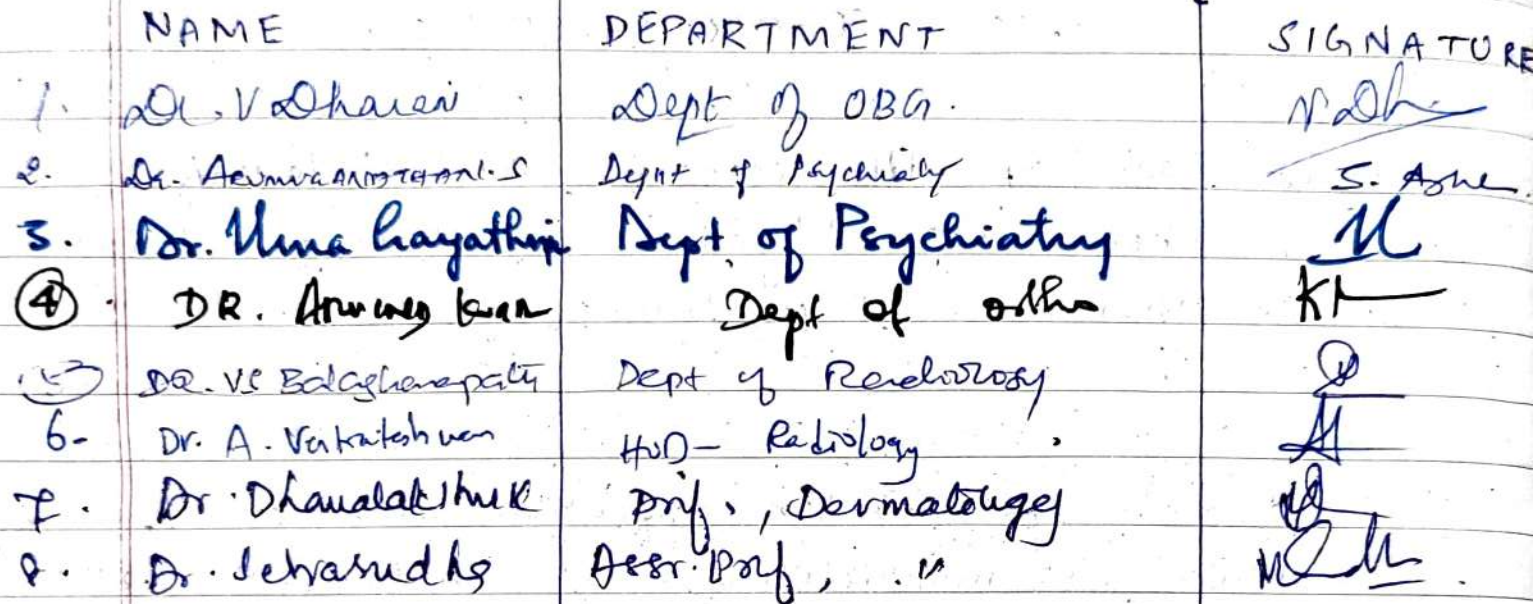 NAME DEPARTMENT SIGNATURE
1. Dr. V Dharani Dept of OBG.
2. Dr. S Dept of Psychiatry S.
3. Dr. Uma Gayathri Dept of Psychiatry
4 DR. Dept of ortho
DR. VS Balaghanapati Dept of Radiology
6- Dr. A. Venkateshwaran HOD - Radiology
7. Dr. Dhanalakshmi K Prof., Dermatology
8. Dr. Asst. Prof, "